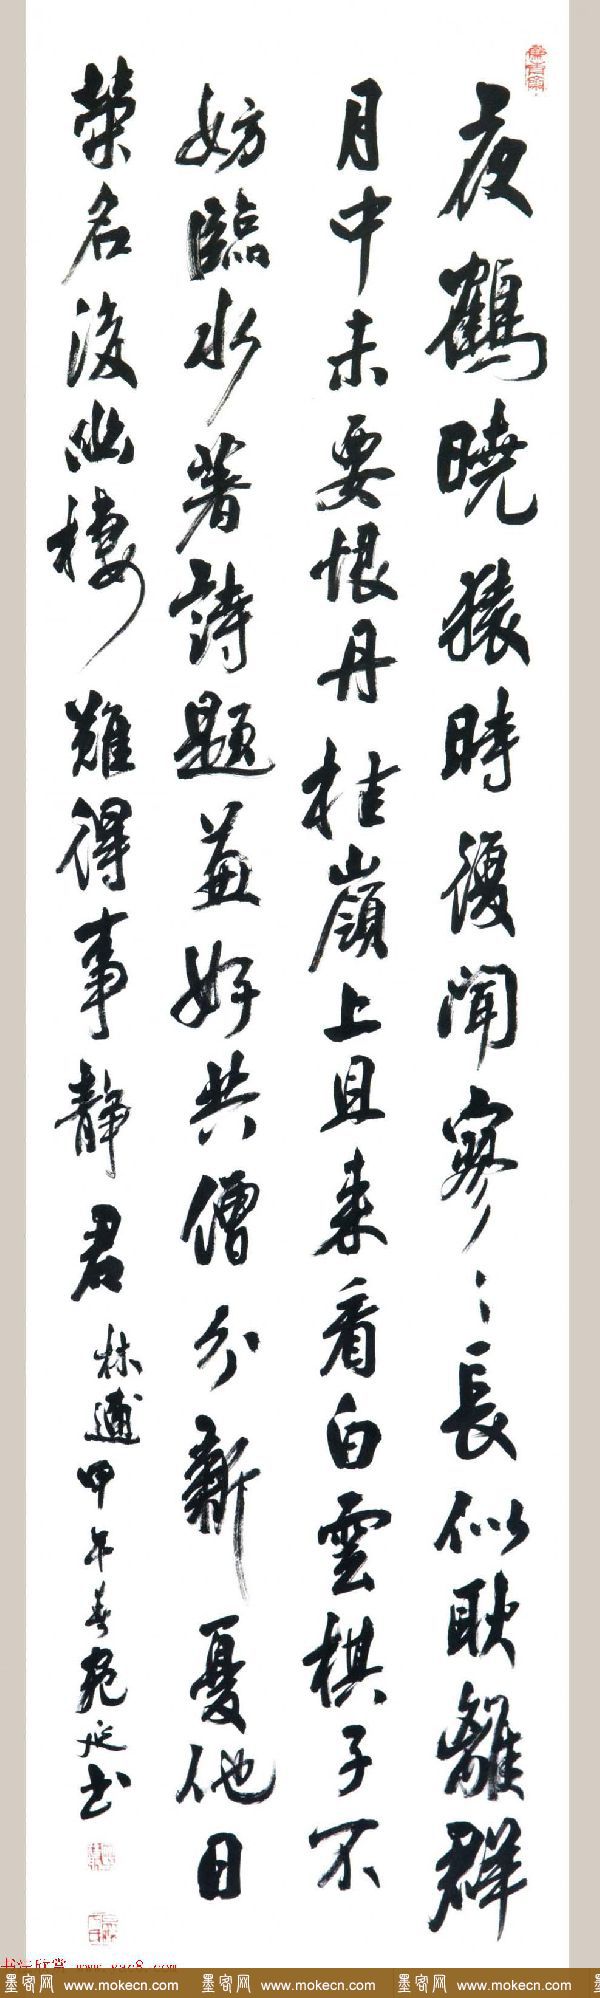 夜鶴曉猿時復聞寥〻長似耿離群
月中未要恨丹桂嶺上且来看白雲棋子不
妨臨水著詩題蓋好共僧分新憂他日
榮名後幽棲難得事静君
林逋甲午春
書
墨客网 www.mokecn.com 墨客网 www.mokecn.com 墨客网 www.mokecn.com